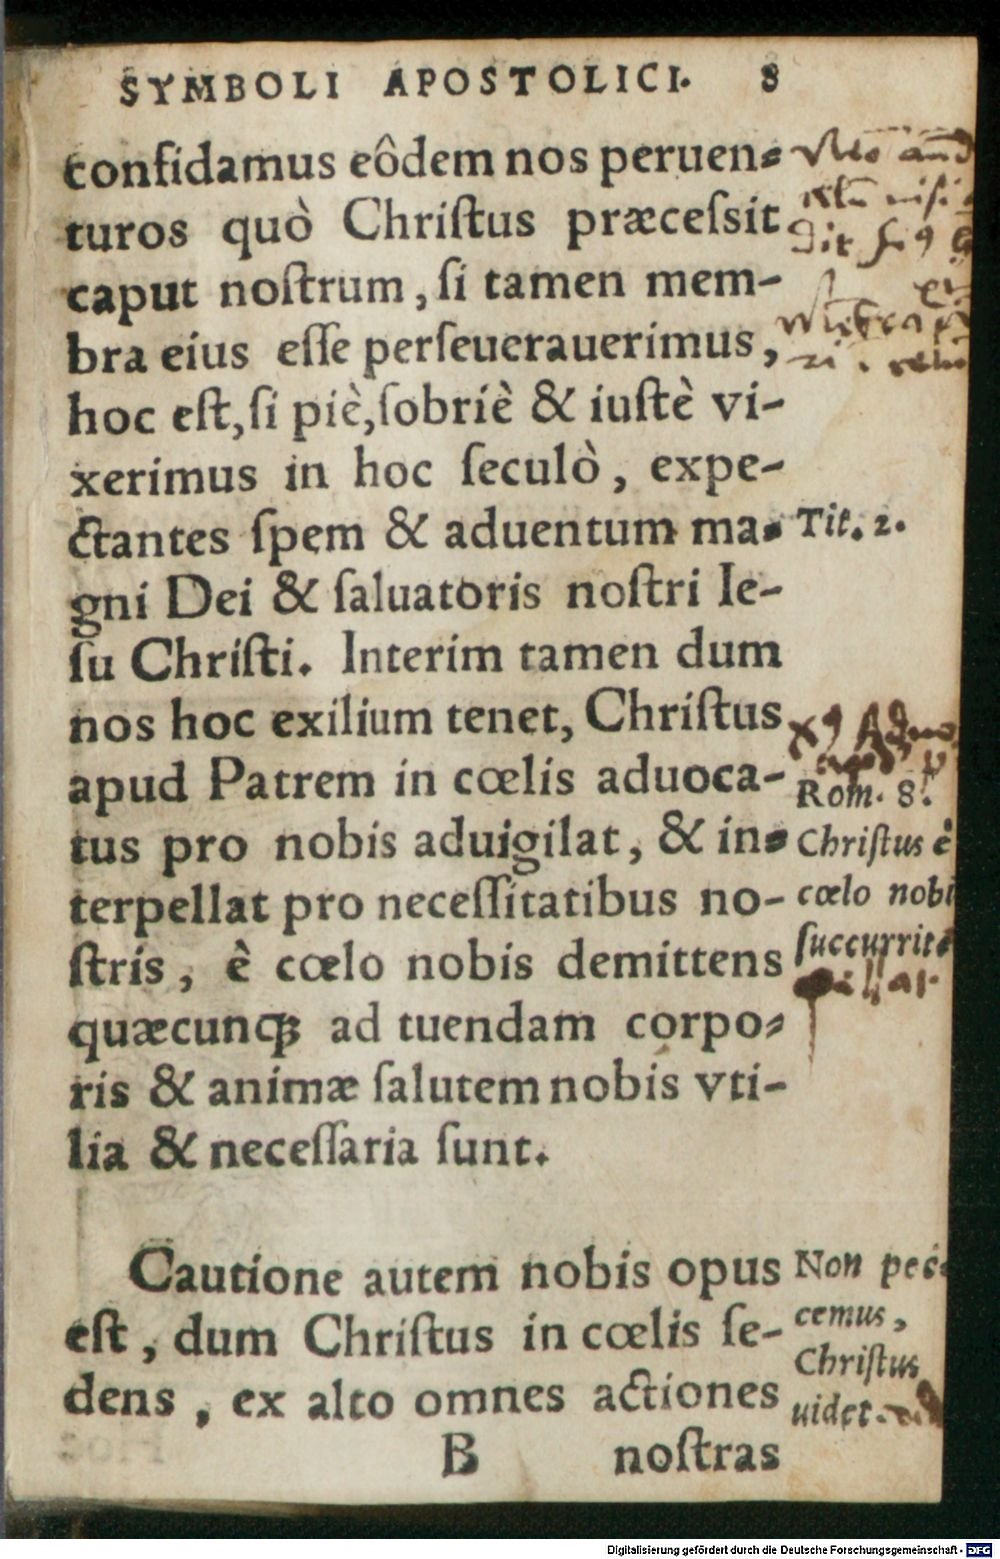 SYMBOLI APOSTOLICI. 8
confidamus eôdem nos peruen-
turos quò Chriſtus præceſsit
caput noſtrum, ſi tamen mem-
bra eius eſſe perſeuerauerimus,
hoc eſt, ſi piè, ſobriè & iuſtè vi-
xerimus in hoc ſeculò, expe-
ctantes ſpem & aduentum ma-
gni Dei & ſaluatoris noſtri Ie-
ſu Chriſti. Interim tamen dum
nos hoc exilium tenet, Chriſtus
apud Patrem in cœlis aduoca-
tus pro nobis aduigilat, & in-
terpellat pro neceſſitatibus no-
ſtris, è cœlo nobis demittens
quæcunqꝫ ad tuendam corpo-
ris & animæ ſalutem nobis vti-
lia & neceſſaria ſunt.
Cautione autem nobis opus
eſt, dum Chriſtus in cœlis ſe-
dens, ex alto omnes actiones
B noſtras
Tit. 2.
Rom. 8.
Chriſtus è
cœlo nobi
ſuccurrit
Non pec-
cemus,
Chriſtus
uidet.
Digitalisierung gefördert durch die Deutsche Forschungsgemeinschaft - DFG